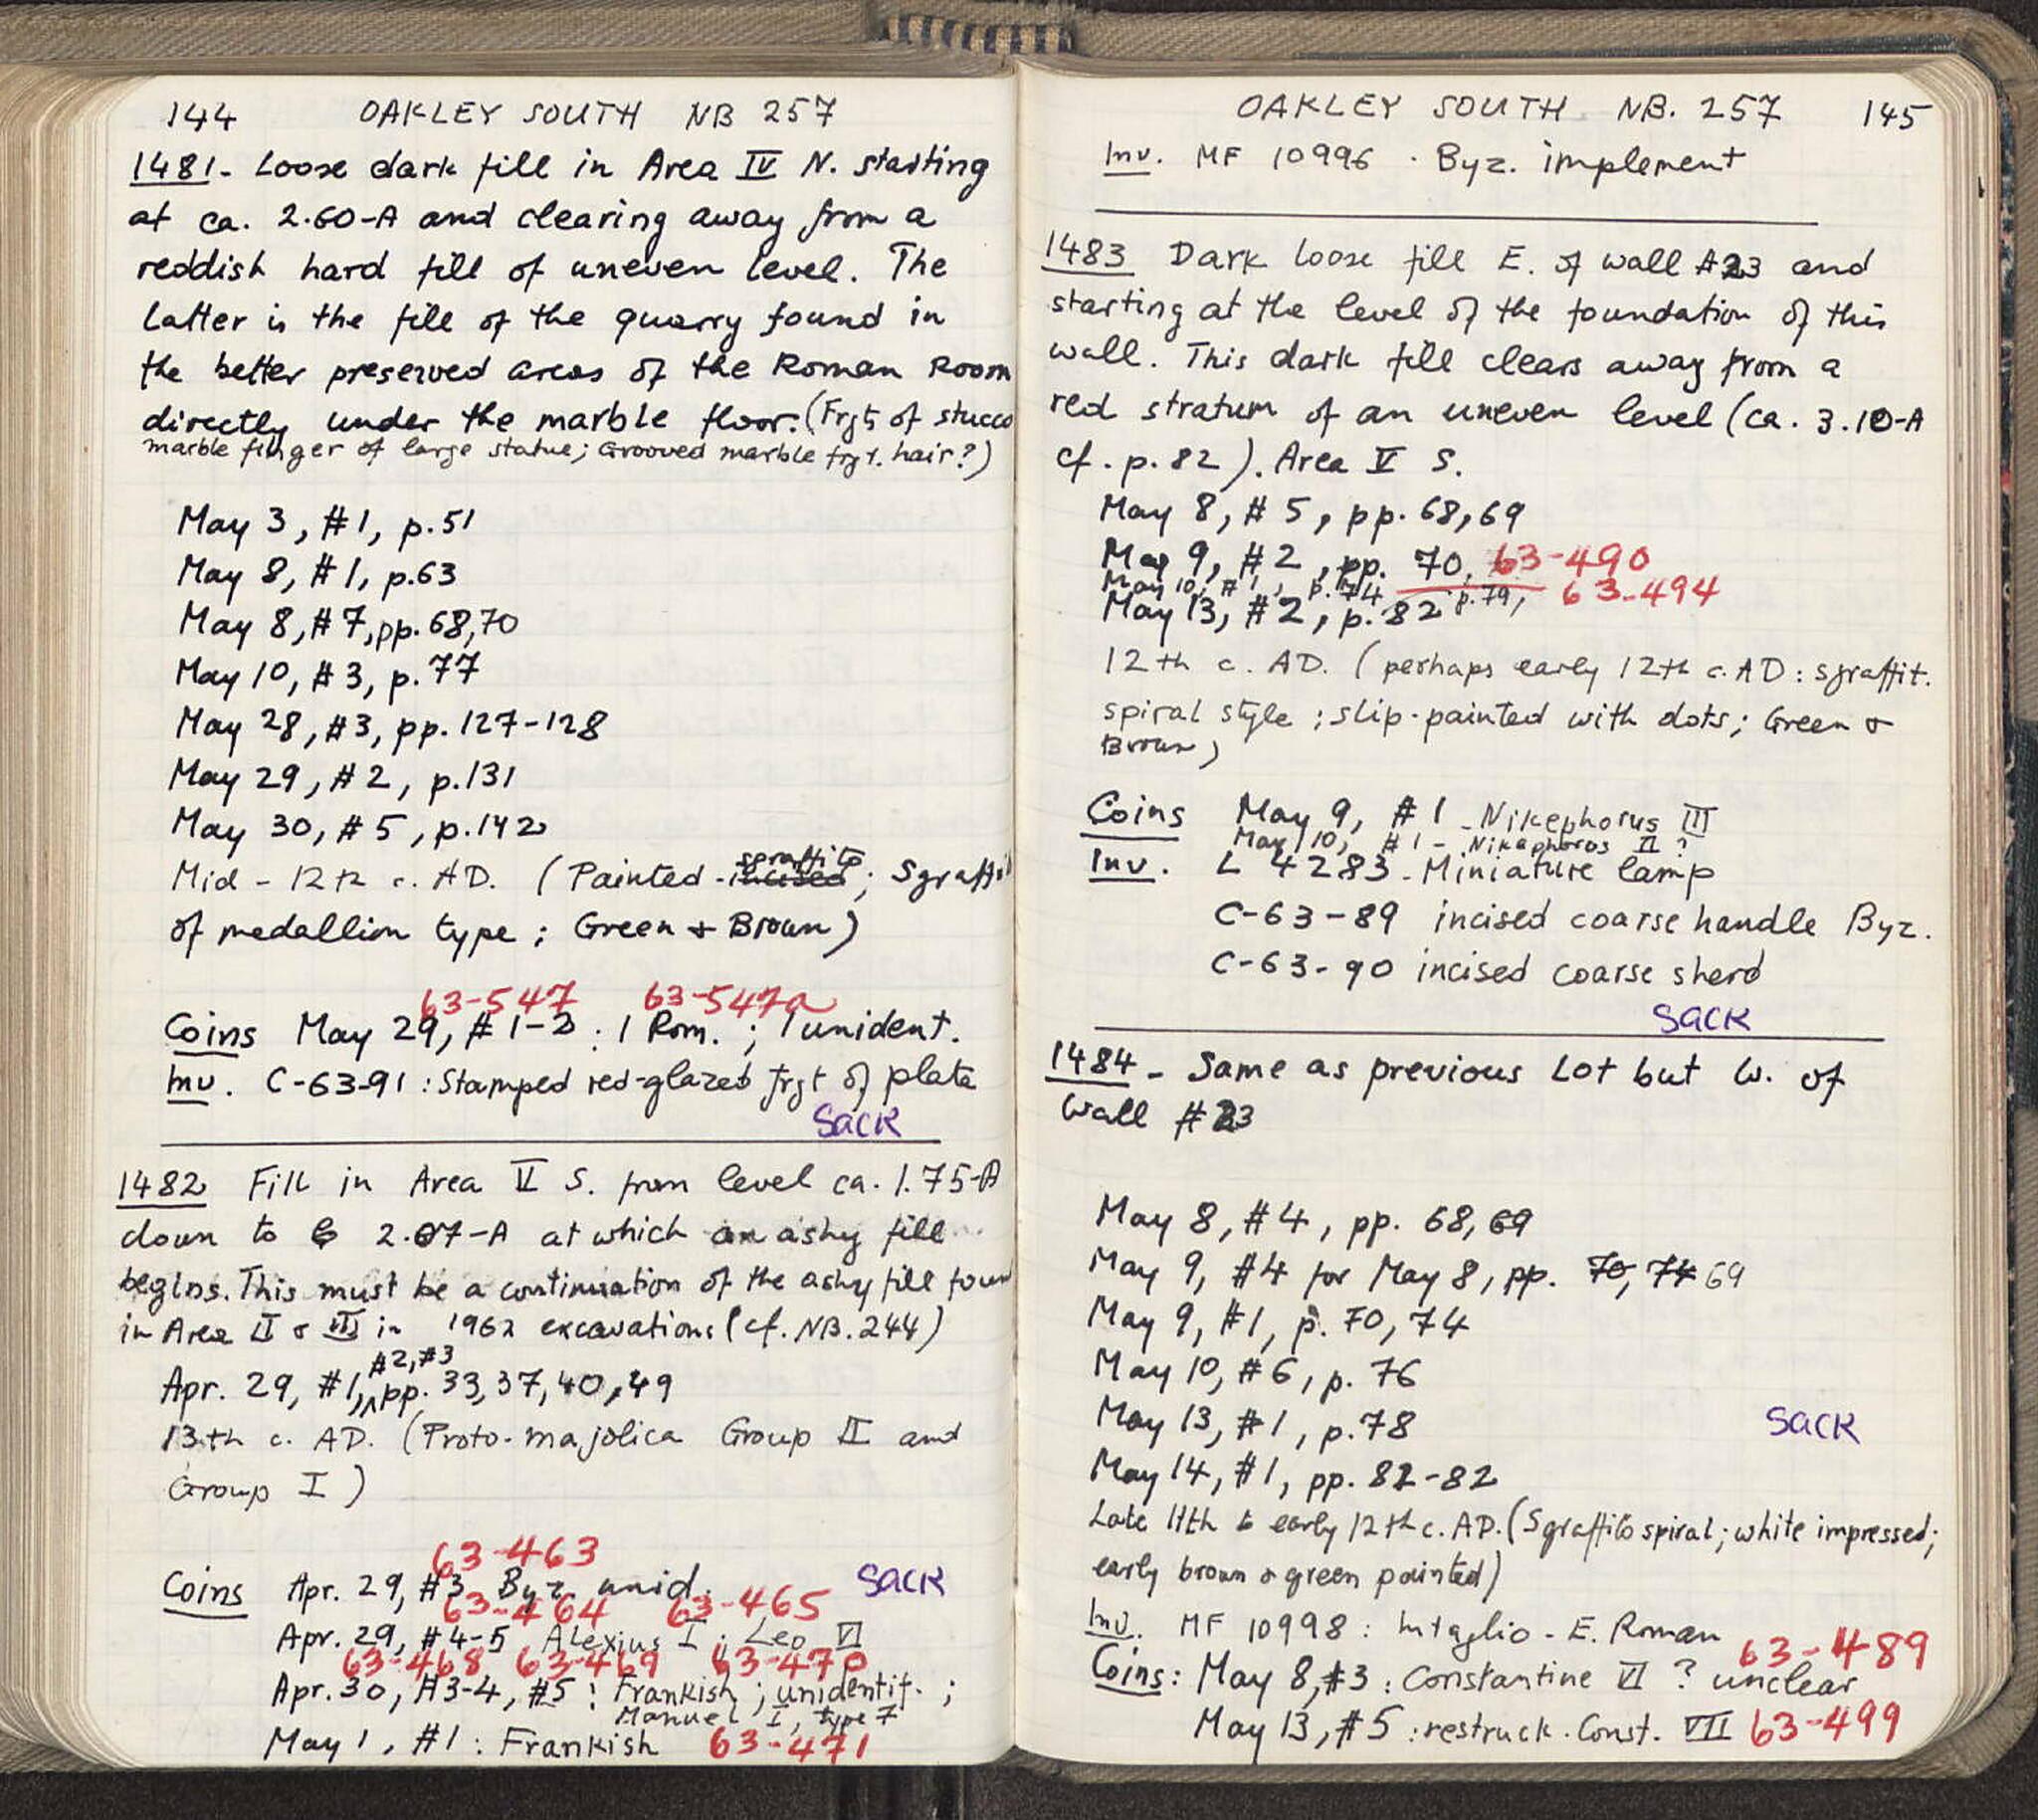 144 OAKLEY SOUTH NB 257
1481- Loose dark fill in Area IV N. starting
at ca. 2.60-A and clearing away from a
reddish hard fill of uneven level. The
latter is the fill of the quarry found in
the better preserved areas of the Roman Room
directly under the marble floor. (Frgts of stucco
marble finger of large statue; Grooved marble frgt. hair?)
May 3, #1, p.51
May 8, #1, p.63
May 8, #7, pp.68,70
May 10, #3, p.77
May 28, #3, pp.127-128
May 29, #2, p.131
May 30, #5, p.142
sgraffito
Mid-12th c. AD. (Painted-incised; Sgraffito
of medallion type; Green & Brown)
63-547 63-547a
Coins May 29, #1-2: 1 Rom.; 1 unident.
Inv. C-63-91: Stamped red-glazed frgt of plate
SACK
1482 Fill in Area V S. from level ca. 1.75-A
down to 2.07-A at which an ashy fill
begins. This must be a continuation of the ashy fill foun
in Area II & III in 1962 excavations (cf. NB. 244)
#2, #3
Apr. 29, #1, pp. 33,37,40,49
13th c. AD. (Proto-majolica Group II and
Group I)
63-463
Coins Apr. 29, #3 Byz. unid. SACK
63-464 63-465
Apr. 29, #4-5 Alexius I; Leo VI
63-468 63-469 63-470
Apr. 30, #3-4, #5: Frankish; unidentif.;
Manuel I, type 7
May 1, #1: Frankish 63-471
OAKLEY SOUTH NB. 257 145
Inv. MF 10996 . Byz. implement
1483 Dark loose fill E. of wall #23 and
starting at the level of the foundation of this
wall. This dark fill clears away from a
red stratum of an uneven level (ca. 3.10-A
cf. p.82). Area V S.
May 8, #5, pp. 68,69
May 9, #2, pp. 70, 63-490
May 10, #1, p.74 p.79, 63-494
May 13, #2, p.82
12th c. AD. (perhaps early 12th c. AD: sgraffit.
spiral style; slip-painted with dots; Green &
Brown)
Coins May 9, #1 - Nikephorus III
May 10, #1 - Nikephoros II ?
Inv. L 4283 - Miniature lamp
C-63-89 incised coarse handle Byz.
C-63-90 incised coarse sherd
SACK
1484 - Same as previous Lot but W. of
Wall #23
May 8, #4, pp. 68, 69
May 9, #4 for May 8, pp. 70, 74 69
May 9, #1, p. 70, 74
May 10, #6, p. 76
May 13, #1, p.78 SACK
May 14, #1, pp. 82-82
Late 11th to early 12th c. AD. (Sgraffito spiral; white impressed;
early brown & green painted)
Inv. MF 10998: Intaglio - E. Roman
63-489
Coins: May 8, #3: Constantine VI ? unclear
May 13, #5: restruck. Const. VII 63-499